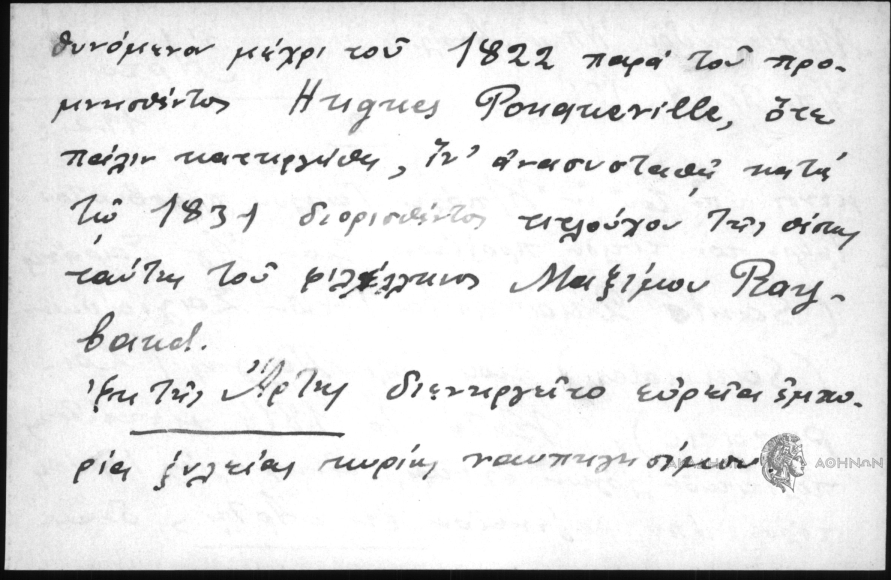 θυνόμενον μέχρι τοῦ 1822 παρὰ τοῦ προ-
μνησθέντος Hugues Pouqueville, ὅτε
πάλιν κατηργήθη, ἵν' ἀνασυσταθῇ κατὰ
τὸ 1831 διορισθέντος τιτλούχου τῆς θέσης
ταύτης τοῦ φιλέλληνος Μαξίμου Ray-
baud.
Ἐκ τῆς Ἄρτης διενηργεῖτο εὐρεῖα ἐμπο-
ρία ξυλείας κυρίως ναυπηγησίμου
ΑΘΗΝΩΝ